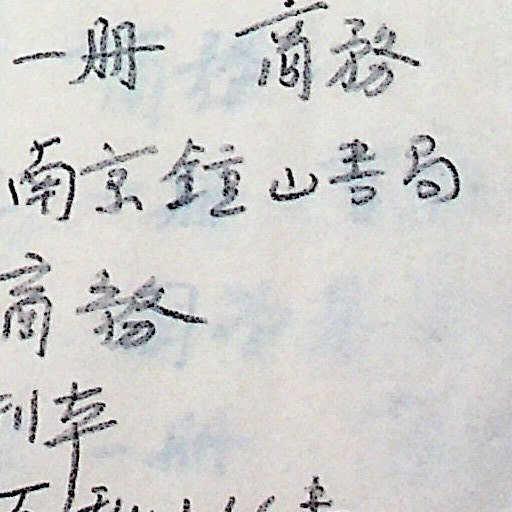 一册 商務
南京鍾山書局
商務
刊本